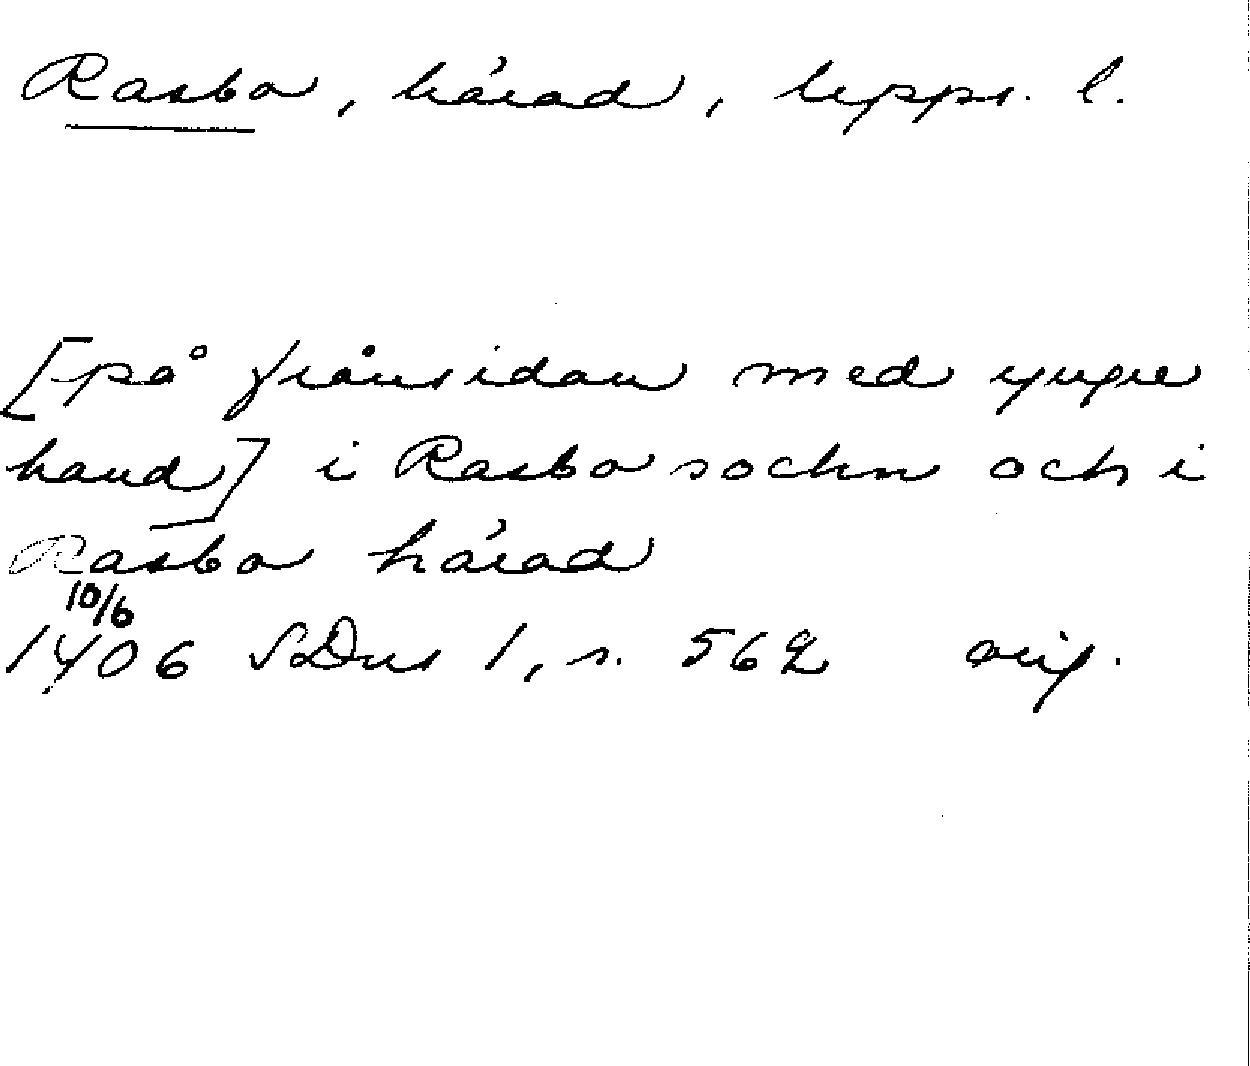 Rasbo, härad, Upps. l.
[på frånsidan med yngre
hand] i Rasbo sochn och i
Rasbo härad
10/6
1406 SDns 1, s. 562 orig.